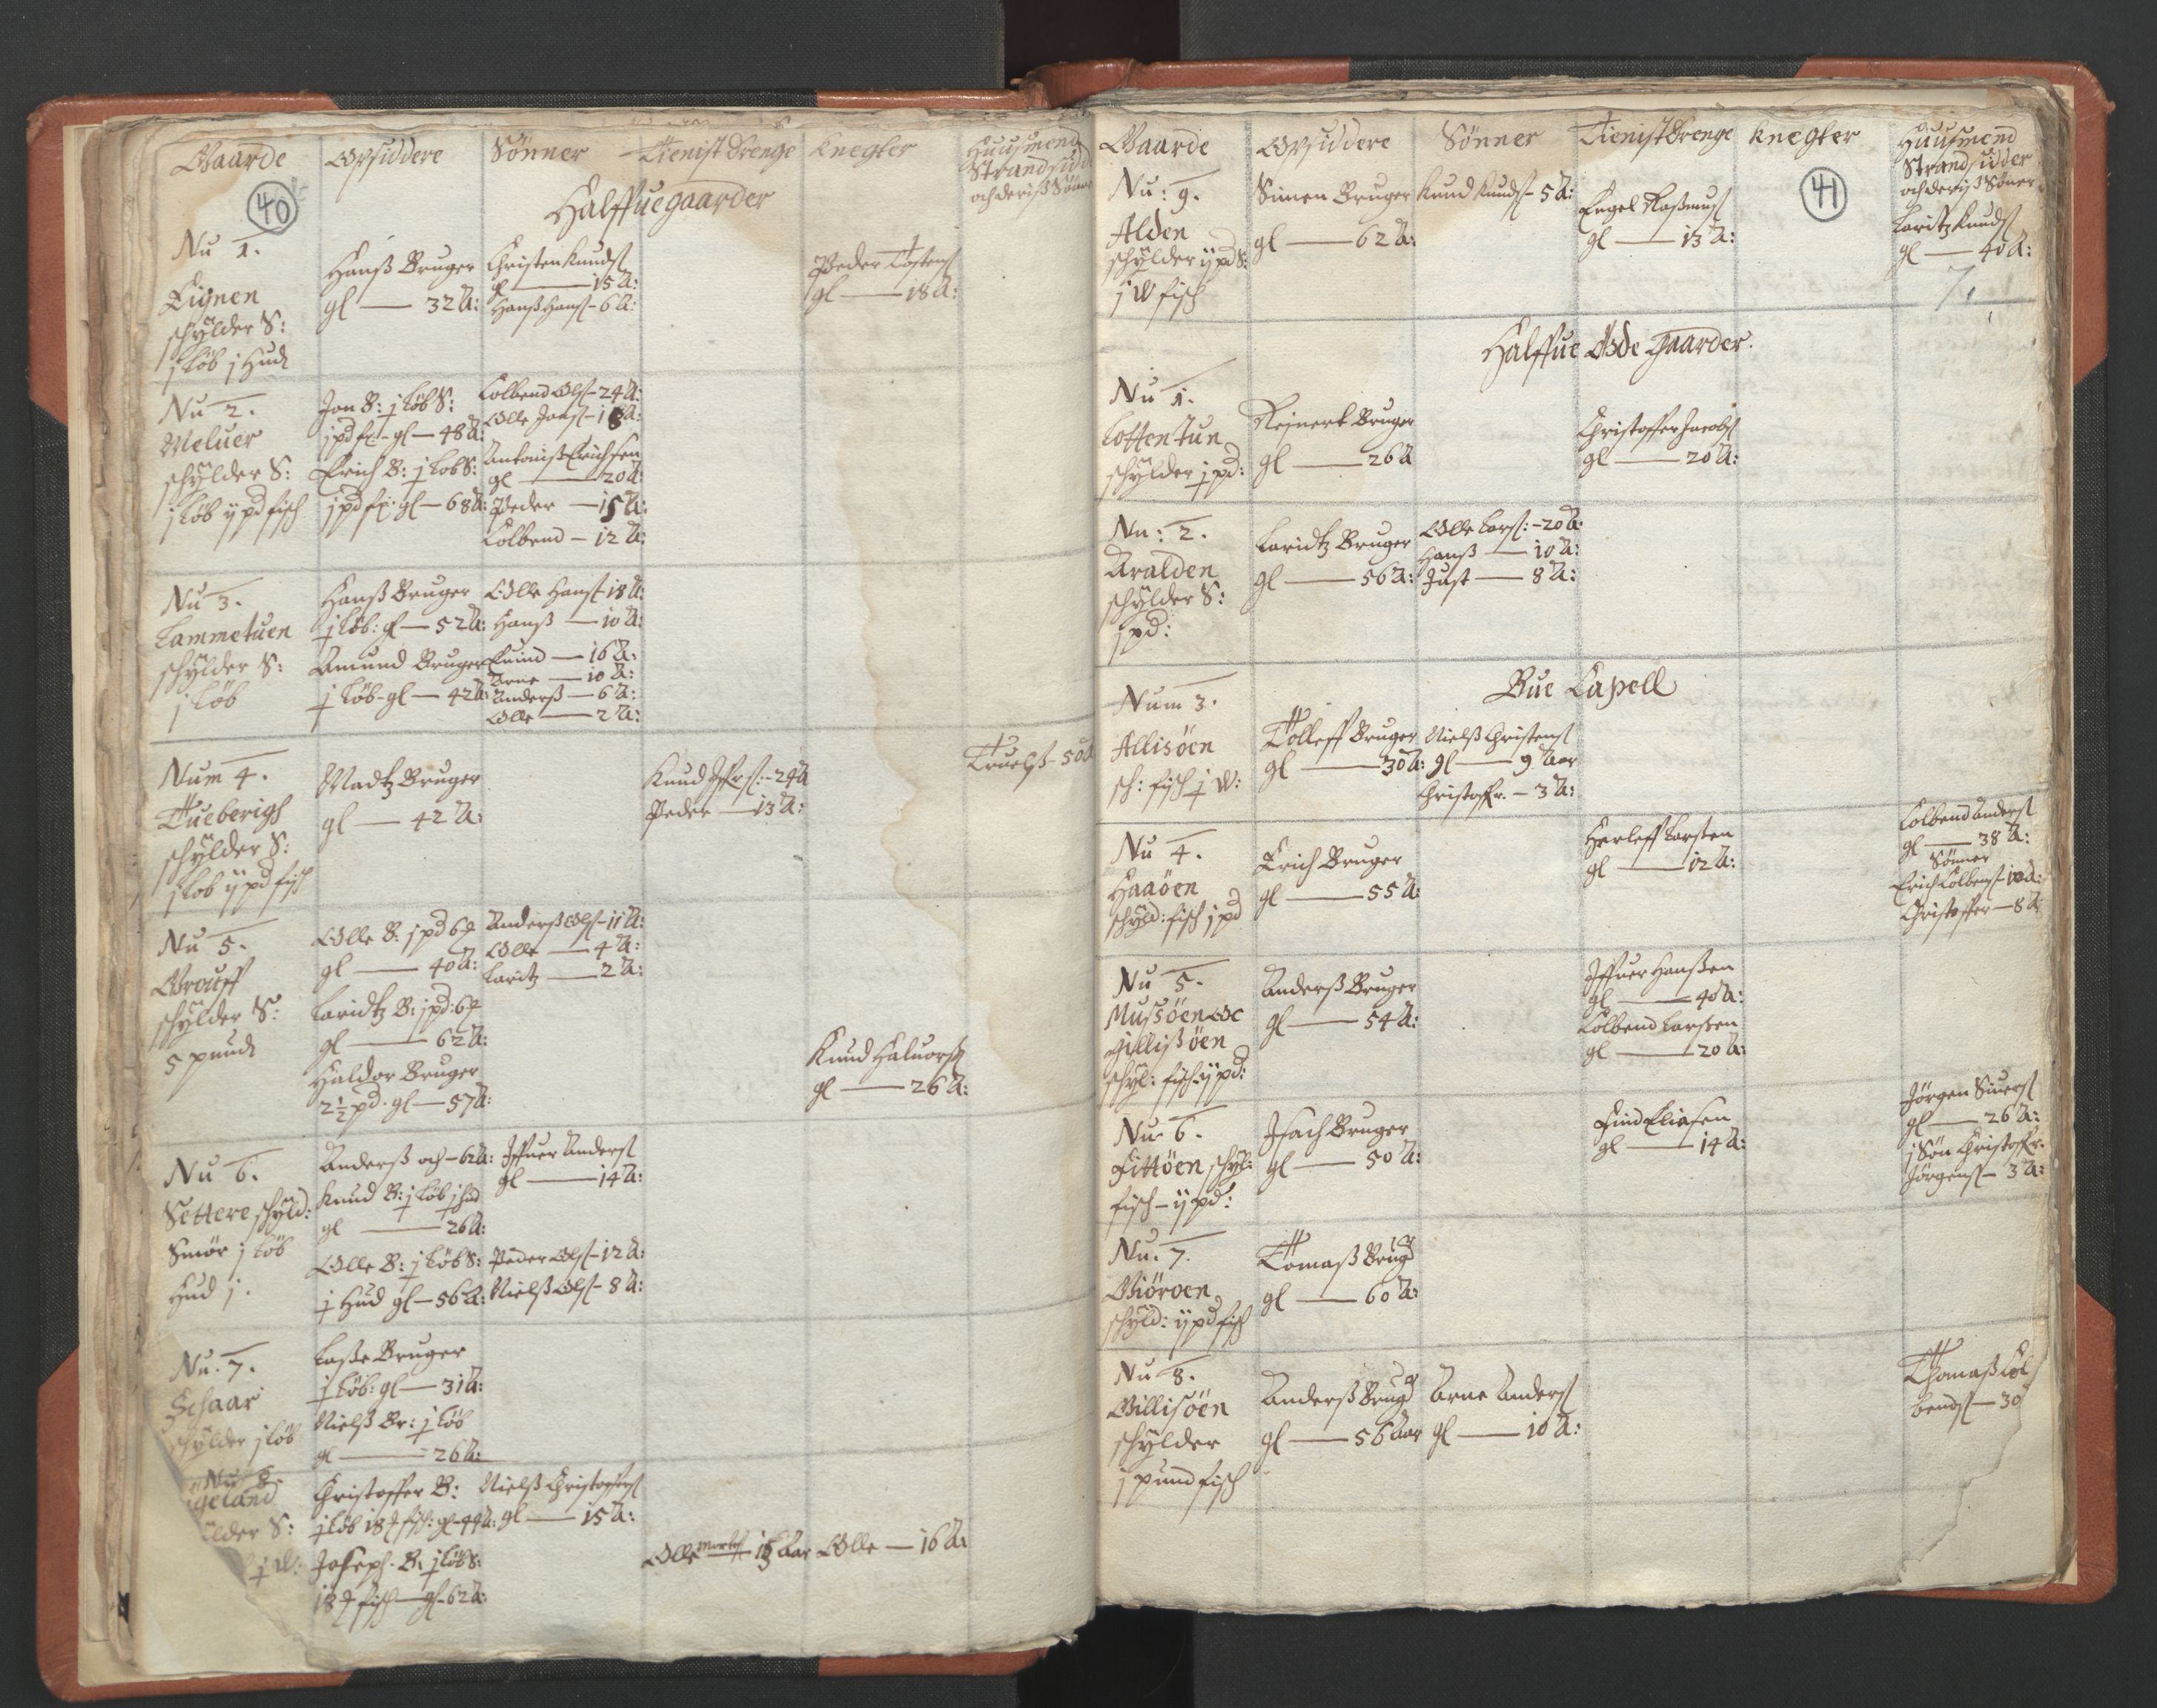 Gaarde Opsiddere Sönner Tienist drenge Knegter Huusmend
Strandsid
och deriss Sönner
40
Halffue gaarder
Nu 1.
Eignen
schylder S:
j Löb j Hud
Hanss Bruger
gl — 32 A:
Christen Knuds
gl — 15 A:
Hanss Hans - 6 A:
Peder Tostens
gl — 18 A:
Nu 2.
Meluer
schylder S:
j Löb ij pd fisch
Jon B: j Löb S:
j pd fi - gl — 48 A:
Erich B: j Löb S:
j pd fi: gl — 68 A:
Colbend Ols - 24 A:
Olle Jons - 18 A:
Antoniss Erichsen
gl — 20 A:
Peder — 15 A:
Colbend — 12 A:
Nu 3.
Lammetuen
schylder S:
j Löb
Hanss Bruger
j Löb: gl — 52 A:
Amund Bruger
j Löb - gl — 42 A:
Olle Hans - 18 A:
Hanss — 10 A:
Euind — 16 A:
Arne — 10 A:
Anderss — 6 A:
Olle — 2 A:
Num 4.
Tueberigh
schylder S:
j Löb ij pd fisch
Madtz Bruger
gl — 42 A:
Knud Iffrs: - 24 A
Peder — 13 A:
Truelss - 50 A
Nu 5.
Grouff
schylder S:
5 pund
Olle B: j pd 6
gl — 40 A:
Laridtz B: j pd: 6
gl — 62 A:
Haldor Bruger
2½ pd. gl — 57 A:
Anderss Ols - 11 A:
Olle — 4 A:
Laritz — 2 A:
Knud Haluors
gl — 26 A:
Nu 6.
Settere schyld:
Smör j Löb
Hud j.
Anderss och - 62 A:
Knud B: j Löb j hud
gl — 26 A:
Olle B: j Löb S:
j Hud gl — 56 A:
Iffuer Anders
gl — 14 A:
Peder Ols - 12 A:
Nielss Ols - 8 A:
Nu. 7.
Schaar
schylder j Löb
Lasse Bruger
j Löb: gl — 31 A:
Nielss Br: j Löb
gl — 26 A:
Nu 8
geland
ylder S:
j W:
Christoffer B:
j Löb 18 fisch: gl - 44 A:
Joseph. B: j Löb S:
18 fisch — gl - 62 A:
Nielss Christoffers
gl — 15 A:
Olle Mortens 15 Aar
Olle — 16 A:
Gaarde Opsiddere Sönner Tienist drenge Knegter Huusmend
Strandsidder
och deriss Söner
41
Nu: 9.
Alden
schylder ij pd S:
j W fisch
Simen Bruger
gl — 62 A:
Knud Knuds - 5 A:
Engel Rasmus
gl — 13 A:
Laritz Knuds
gl — 40 A:
7,
Halffue Øde gaarder.
Nu 1.
Lottentun
schylder j pd:
Reinert Bruger
gl — 26 A
Christoffer Jacobs
gl — 20 A:
Nu: 2.
Aralden
schylder S:
j pd:
Laridtz Bruger
gl — 56 A:
Olle Lars: - 20 A:
Hanss — 10 A:
Just — 8 A:
Bue Capell
Num 3.
Allisöen
sch: fisch j W:
Tolleff Bruger
gl — 30 A:
Nielss Christens
gl — 9 Aar
Christoffr. — 3 A:
Nu 4.
Haaöen
schyld: fisch j pd
Erich Bruger
gl — 55 A
Herleff Larsten
gl — 12 A:
Colbend Anders
gl — 38 A:
Sönner
Erich Colbens - 10 A:
Christoffer — 8 A
Nu 5.
Mussöen oc
Gillissöen
schyl: fisch ij pd:
Anderss Bruger
gl — 54 A:
Iffuer Hanssen
gl — 40 A:
Colbend Larssen
gl — 20 A:
Nu 6.
Fittöen schyl:
fisch — ij pd:
Isach Bruger
gl — 50 A:
Find Eliasen
gl — 14 A:
Jörgen Siuers
gl — 26 A:
j Sön Christoffr.
Jörgens — 3 A:
Nu. 7.
Giöroen
schyld: ij pd fisch
Tomass Brug
gl — 60 A:
Nu 8.
Gillisöen
schylder
j pund fisch
Anderss Brug
gl — 56 Aar
Arne Anders
gl — 10 A:
Thomass Col
bends — 30